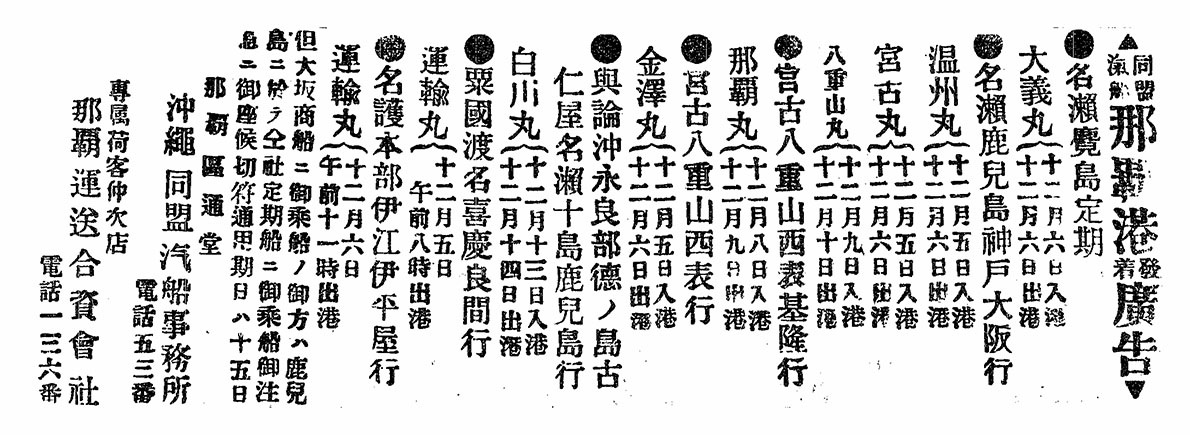 ▲同盟汽船那覇港發着廣告▼
●名瀬鹿島定期
大義丸（十二月六日入港
十二月六日出港
●名瀬鹿兒島神戸大阪行
温州丸（十二月五日入港
十二月六日出港
宮古丸（十二月五日入港
十二月六日出港
八重山丸（十二月九日入港
十二月十日出港
●宮古八重山西表基隆行
那覇丸（十二月八日入港
十二月九日出港
●宮古八重山西表行
金澤丸（十二月五日入港
十二月六日出港
●與論沖永良部德ノ島古
仁屋名瀬十島鹿兒島行
白川丸（十二月十三日入港
十二月十四日出港
●粟國渡名喜慶良間行
運輸丸（十二月五日
午前八時出港
●名護本部伊江伊平屋行
運輸丸（十二月六日
午前十一時出港
但大坂商船ニ御乘船ノ御方ハ鹿兒
島ニ於テ仝社定期船ニ御乘船御注
意ニ御座候切符通用期日ハ十五日
那覇區通堂
沖繩同盟汽船事務所
電話五三番
專属荷客仲次店
那覇運送合資會社
電話一三六番